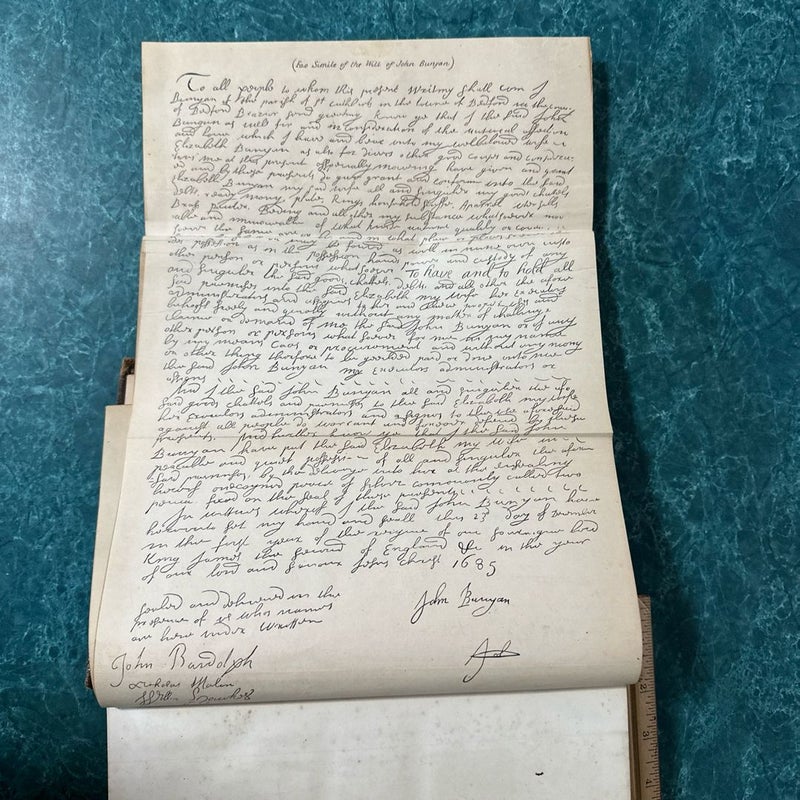 (Fac Simile of the Will of John Bunyan)
To all people to whom this present Writing shall com I
Bunyan of the parish of St cuthbirts in the towne of Bedford in the
of Bedford Brazier send greeting know ye that I the said John
Bunyan as well for and in Consideration of the naturall affection
and loue which I have and bear vnto my welbeloued wife
Elizabeth Bunyan as also for divers other good causes and
me at this present especially moueing have given and granted
and by these presents do giue grant and conferm vnto the said
Elizabeth Bunyan my said wife all and singuler my goods chattels
debts ready mony plate Rings houshold stuffe Aparrel vtensills
Brass pewter Beding and all other my substance whatsoever
moueable and immoueable of what kinde nature quality or
soever the same are or be and in what place or places
the same be shall or may be found as well in mine own
possession as in the possession hands power and custody of any
other person or persons whatsoever To have and to hold all
and singuler the said goods chattels debts and all other the
said premises vnto the said Elizabeth my Wife her Executors
administrators and assignes to her and their proper vses and
behoofe freely and quietly without any matter of challenge
claime or demand of me the said John Bunyan or of any
other person or persons what soever for me in my name
by my means Caus or procurement and without any mony
or other thing therfore to be yeelded paid or done vnto me
the said John Bunyan my Executors administrators or
assignes
And I the said John Bunyan all and singuler the
said goods chattels and premises to the said Elizabeth my wife
her executors administrators and assignes to the vse aforesaid
against all people do warrant and forever defend by these
presents And further know ye that I the said John
Bunyan have put the said Elizabeth my Wife in
peaceable and quiet possession of all and singuler the
said premises, by the deliverye vnto her at the ensealing
hereof one coyned peece of silver commonly called two
pence fixed on the seal of these presents
In wittnes wherof I the said John Bunyan have
herevnto set my hand and seall this 23 day of December
in the first year of the reigne of our soueraigne lord
King James the second of England &c in the year
of our lord and saviour Jesus Christ 1685
sealed and delivered in the
presence of us whos names
are here vnder Written
John Bunyan
John Bardolph
Nicholas Malin
William